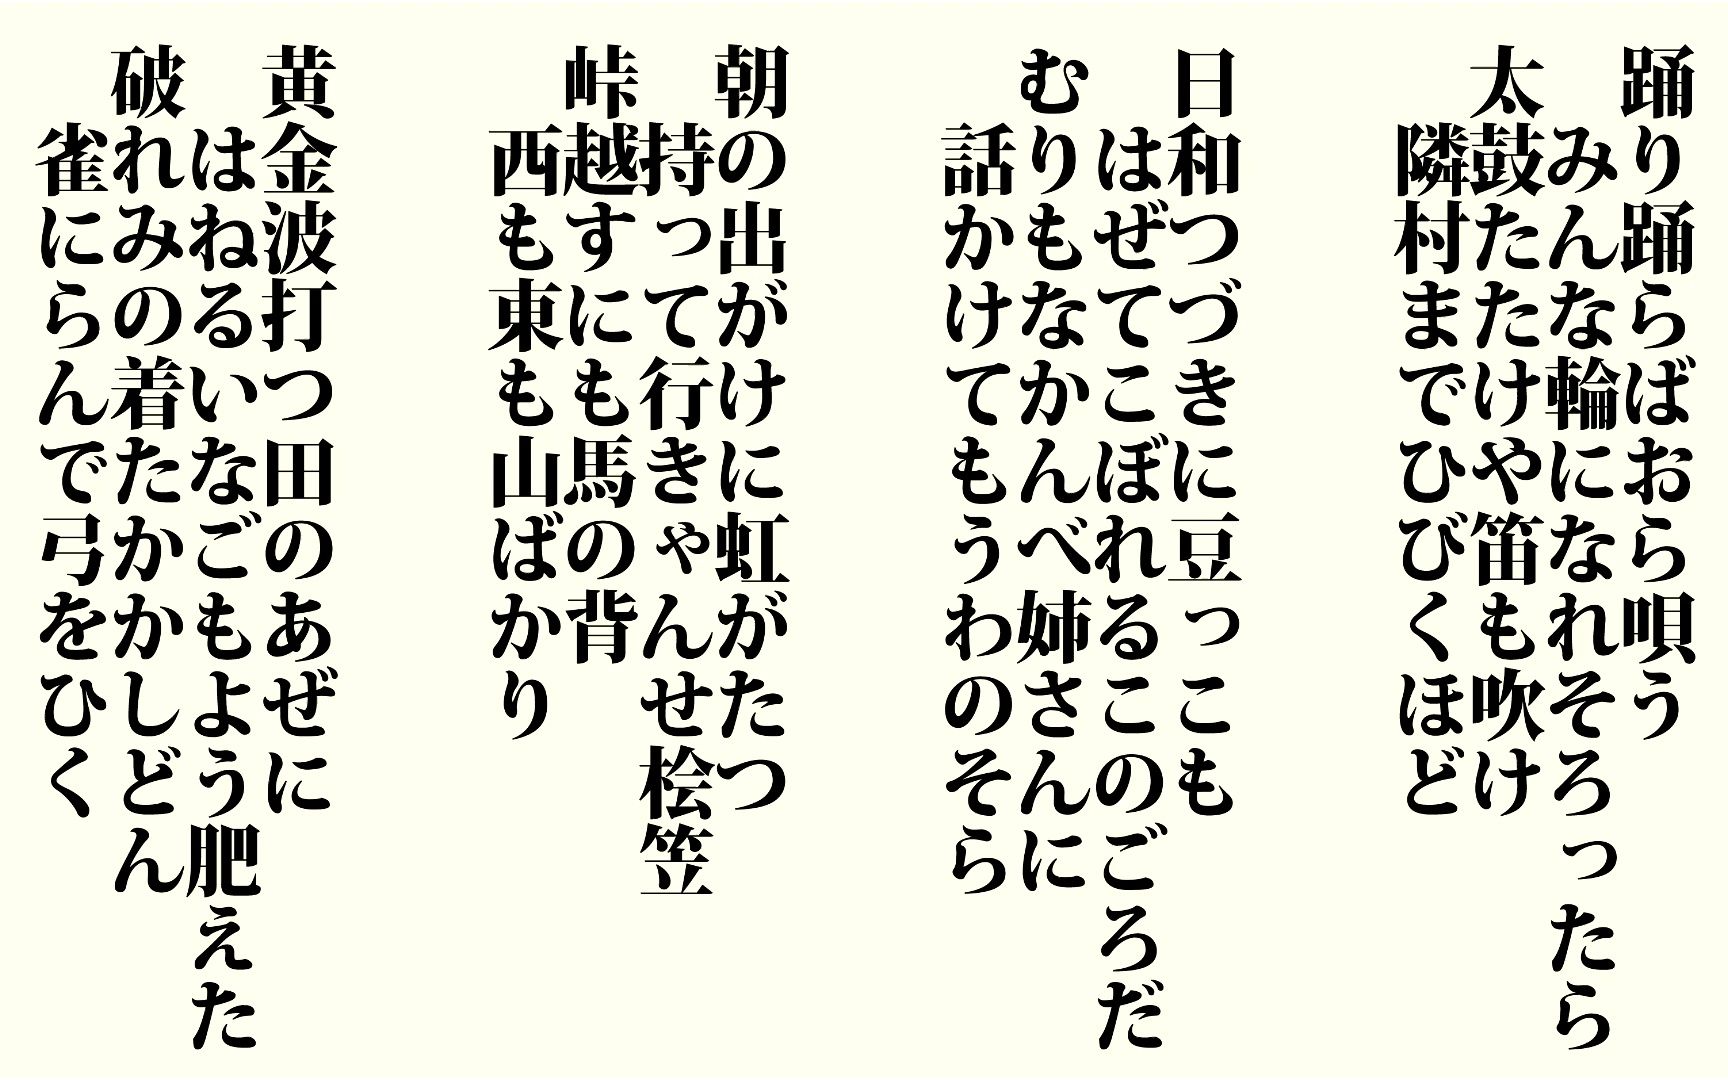 踊り踊らばおら唄う
みんな輪になれそろったら
太鼓たたけや笛も吹け
隣村までひびくほど
日和つづきに豆っこも
はぜてこぼれるこのごろだ
むりもなかんべ姉さんに
話かけてもうわのそら
朝の出がけに虹がたつ
持って行きゃんせ桧笠
峠越すにも馬の背
西も東も山ばかり
黄金波打つ田のあぜに
はねるいなごもよう肥えた
破れみの着たかかしどん
雀にらんで弓をひく